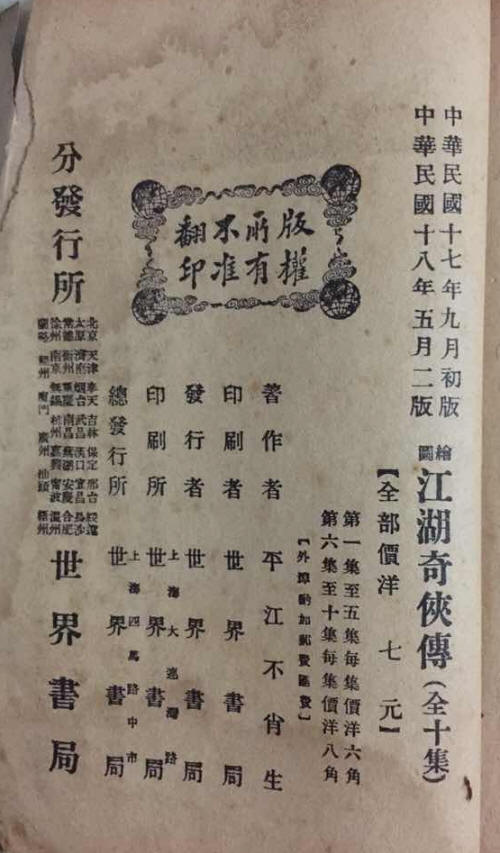 中華民國十七年九月初版
中華民國十八年五月二版
繪圖江湖奇俠傳(全十集)
【全部價洋七元】
第一集至五集每集價洋六角
第六集至十集每集價洋八角
【外埠酌加郵費匯費】
版權所有
不准翻印
著作者 平江不肖生
印刷者 世界書局
發行者 世界書局
印刷所 上海大連灣路 世界書局
總發行所 上海四馬路中市 世界書局
分發行所
北京 天津 奉天 吉林 保定 邢台 綏遠
太原 濟南 烟台 武昌 漢口 宜昌 長沙
常德 衡州 重慶 南昌 蕪湖 安慶 合肥
徐州 南京 無錫 杭州 嘉興 甯波 溫州
蘭谿 廈門 廣州 汕頭 梧州
世界書局